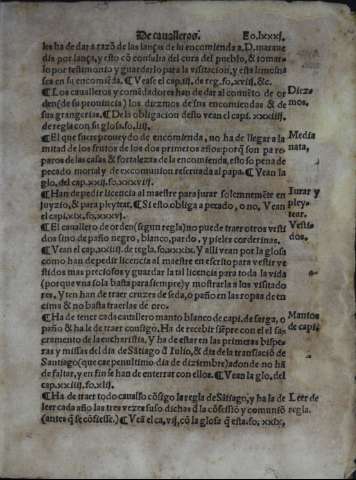 De caualleros. Fo.lxxxj.
les ha de dar a razõ de las lanças de su encomienda a .D. maraue
dis por lança, y esto cõ consulta del cura del pueblo, & tomar
lo por testimonio y guardarlo para la visitacion, y esta limosna
sea en su encomiẽda. Vease el cap.iij. de reg. fo.xvij. &c.
¶ Los caualleros y comẽdadores han de dar al conuẽto de or Diez
den (de su prouincia) los diezmos de sus encomiendas & de mos.
sus grangerias. ¶ Dela obligacion desto vean el capi. xxxiiij
de regla con su glosa. fo.liij.
¶ El que fuere proueydo de encomienda, no ha de llegar a la Media
mitad de los frutos de los dos primeros años: porq̃ son para re nata,
paros de las casas & fortaleza de la encomienda, esto so pena de
pecado mortal y de excomunion reseruada al papa. ¶ Vean la
glo. del cap.xxij. fo.xxxviij.
¶ Han de pedir licencia al maestre para jurar solemnemẽte en Iurar y
juyzio, & para pleytear. ¶ Si esto obliga a pecado, o no, Vean pley=
el capi.xix. fo.xxxvj. tear.
¶ El cauallero de orden (segun regla) no puede traer otros vesti Vesti=
dos sino de paño negro, blanco, pardo, y pieles corderinas. dos.
¶ Vean el cap.xxiij. de regla. fo.xxxix. Y alli vean por la glosa
como han de pedir licencia al maestre en escrito para vestir ve
stidos mas preciosos y guardar la tal licencia para toda la vida
(porque vna sola basta para siempre) y mostrarla a los visitado
res, Y ten han de traer cruzes de seda, o paño en las ropas de en
cima & no basta traerlas de oro.
¶ Ha de tener cada cauallero manto blanco de capi. de sarga, o Mantos
paño & ha le de traer consigo. Ha de recebir siẽpre con el el sa de capi.
cramento de la eucharistia, y ha de estar en las primeras bispe=
ras y missas del dia de Sãtiago ẽ Iulio, & dia de la translaciõ de
Santiago (que cae penultimo dia de diziembre) adonde no hã
de faltar, y en fin se han de enterrar con ellos. ¶ Vean la glo. del
cap.xxiiij. fo.xlij.
¶ Ha de traer todo cauallo cõsigo la regla de Sãtiago, y ha la de Leer de
leer cada año las tres vezes suso dichas q̃ la cõfessiõ y comuniõ regla.
(antes q̃ se cõfiesse.) ¶ Veã el ca. vij. cõ la glosa q̃ esta. fo. xxix,